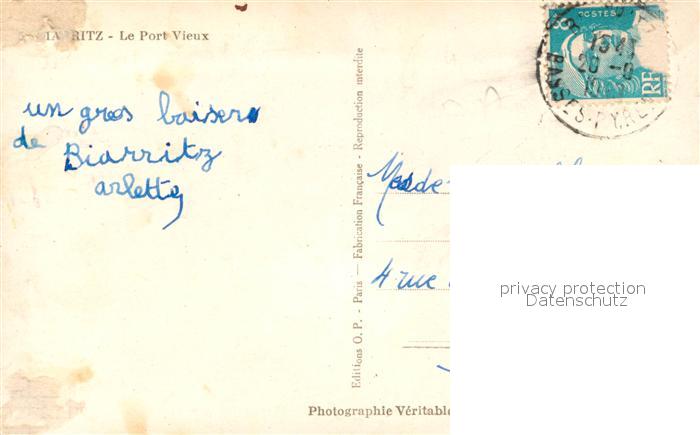 RITZ - Le Port Vieux
un gros baiser
de Biarritz
arlette
Editions O. P. - Paris — Fabrication Française - Reproduction interdite
POSTES
RF
BASSES-PYR
4 rue
privacy protection
Datenschutz
Photographie Véritable